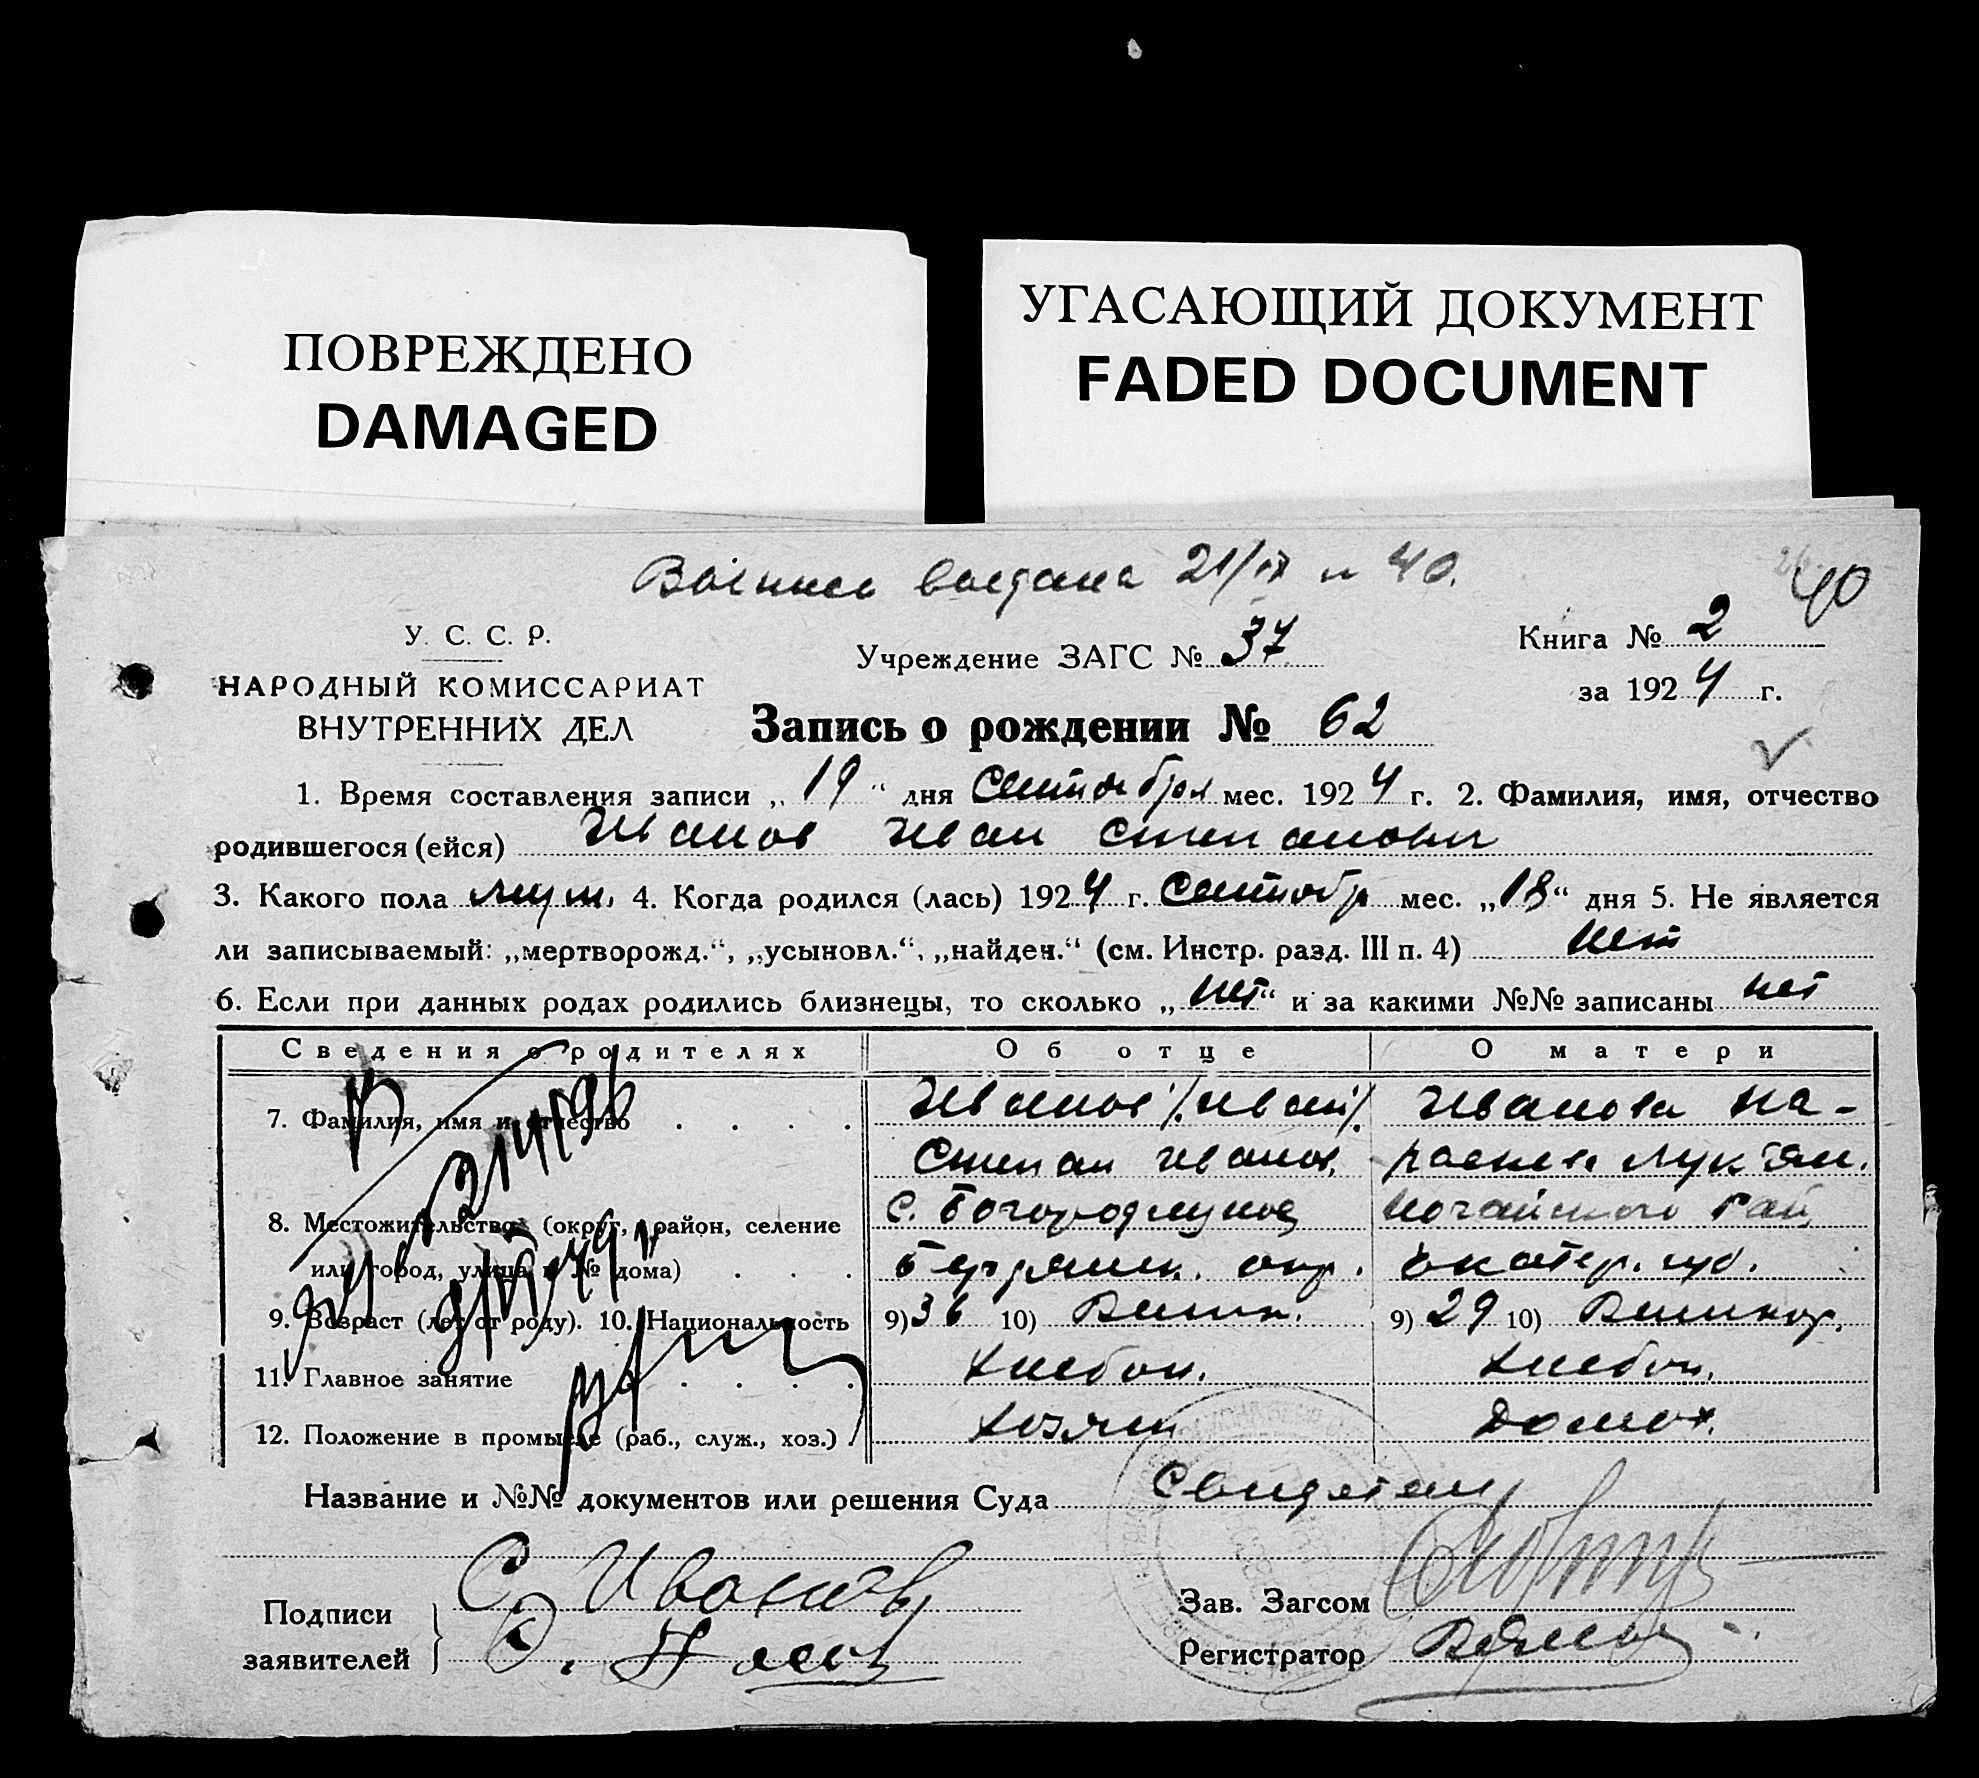 ПОВРЕЖДЕНО
DAMAGED
УГАСАЮЩИЙ ДОКУМЕНТ
FADED DOCUMENT
21/IX 40.
40
У. С. С. Р.
НАРОДНЫЙ КОМИССАРИАТ
ВНУТРЕННИХ ДЕЛ
Учреждение ЗАГС № 37
Книга № 2
за 1924 г.
Запись о рождении № 62
1. Время составления записи „19“ дня Сентября мес. 1924 г. 2. Фамилия, имя, отчество
родившегося (ейся) Иванов Иван Степанович
3. Какого пола муж. 4. Когда родился (лась) 1924 г. Сентябр мес. „18“ дня 5. Не является
ли записываемый: „мертворожд.“, „усыновл.“, „найден.“ (см. Инстр. разд. III п. 4) нет
6. Если при данных родах родились близнецы, то сколько „нет“ и за какими №№ записаны нет
Сведения о родителях Об отце О матери
7. Фамилия, имя и отчество Иванов /Иван/ Иванова Па-
Степан Иванов. раскева Лукʼян.
8. Местожительство (округ, район, селение с. Богородицкое Ногайского
или город, улица и № дома) Бердянск. окр. Екатер. губ.
9. Возраст (лет от роду). 10. Национальность 9) 36 10) 9) 29 10)
11. Главное занятие Хлебоп. Хлебоп.
12. Положение в промысле (раб., служ., хоз.) хозяин домох.
Название и №№ документов или решения Суда Свидетели
Подписи заявителей
С. Иванов
Зав. Загсом
Регистратор